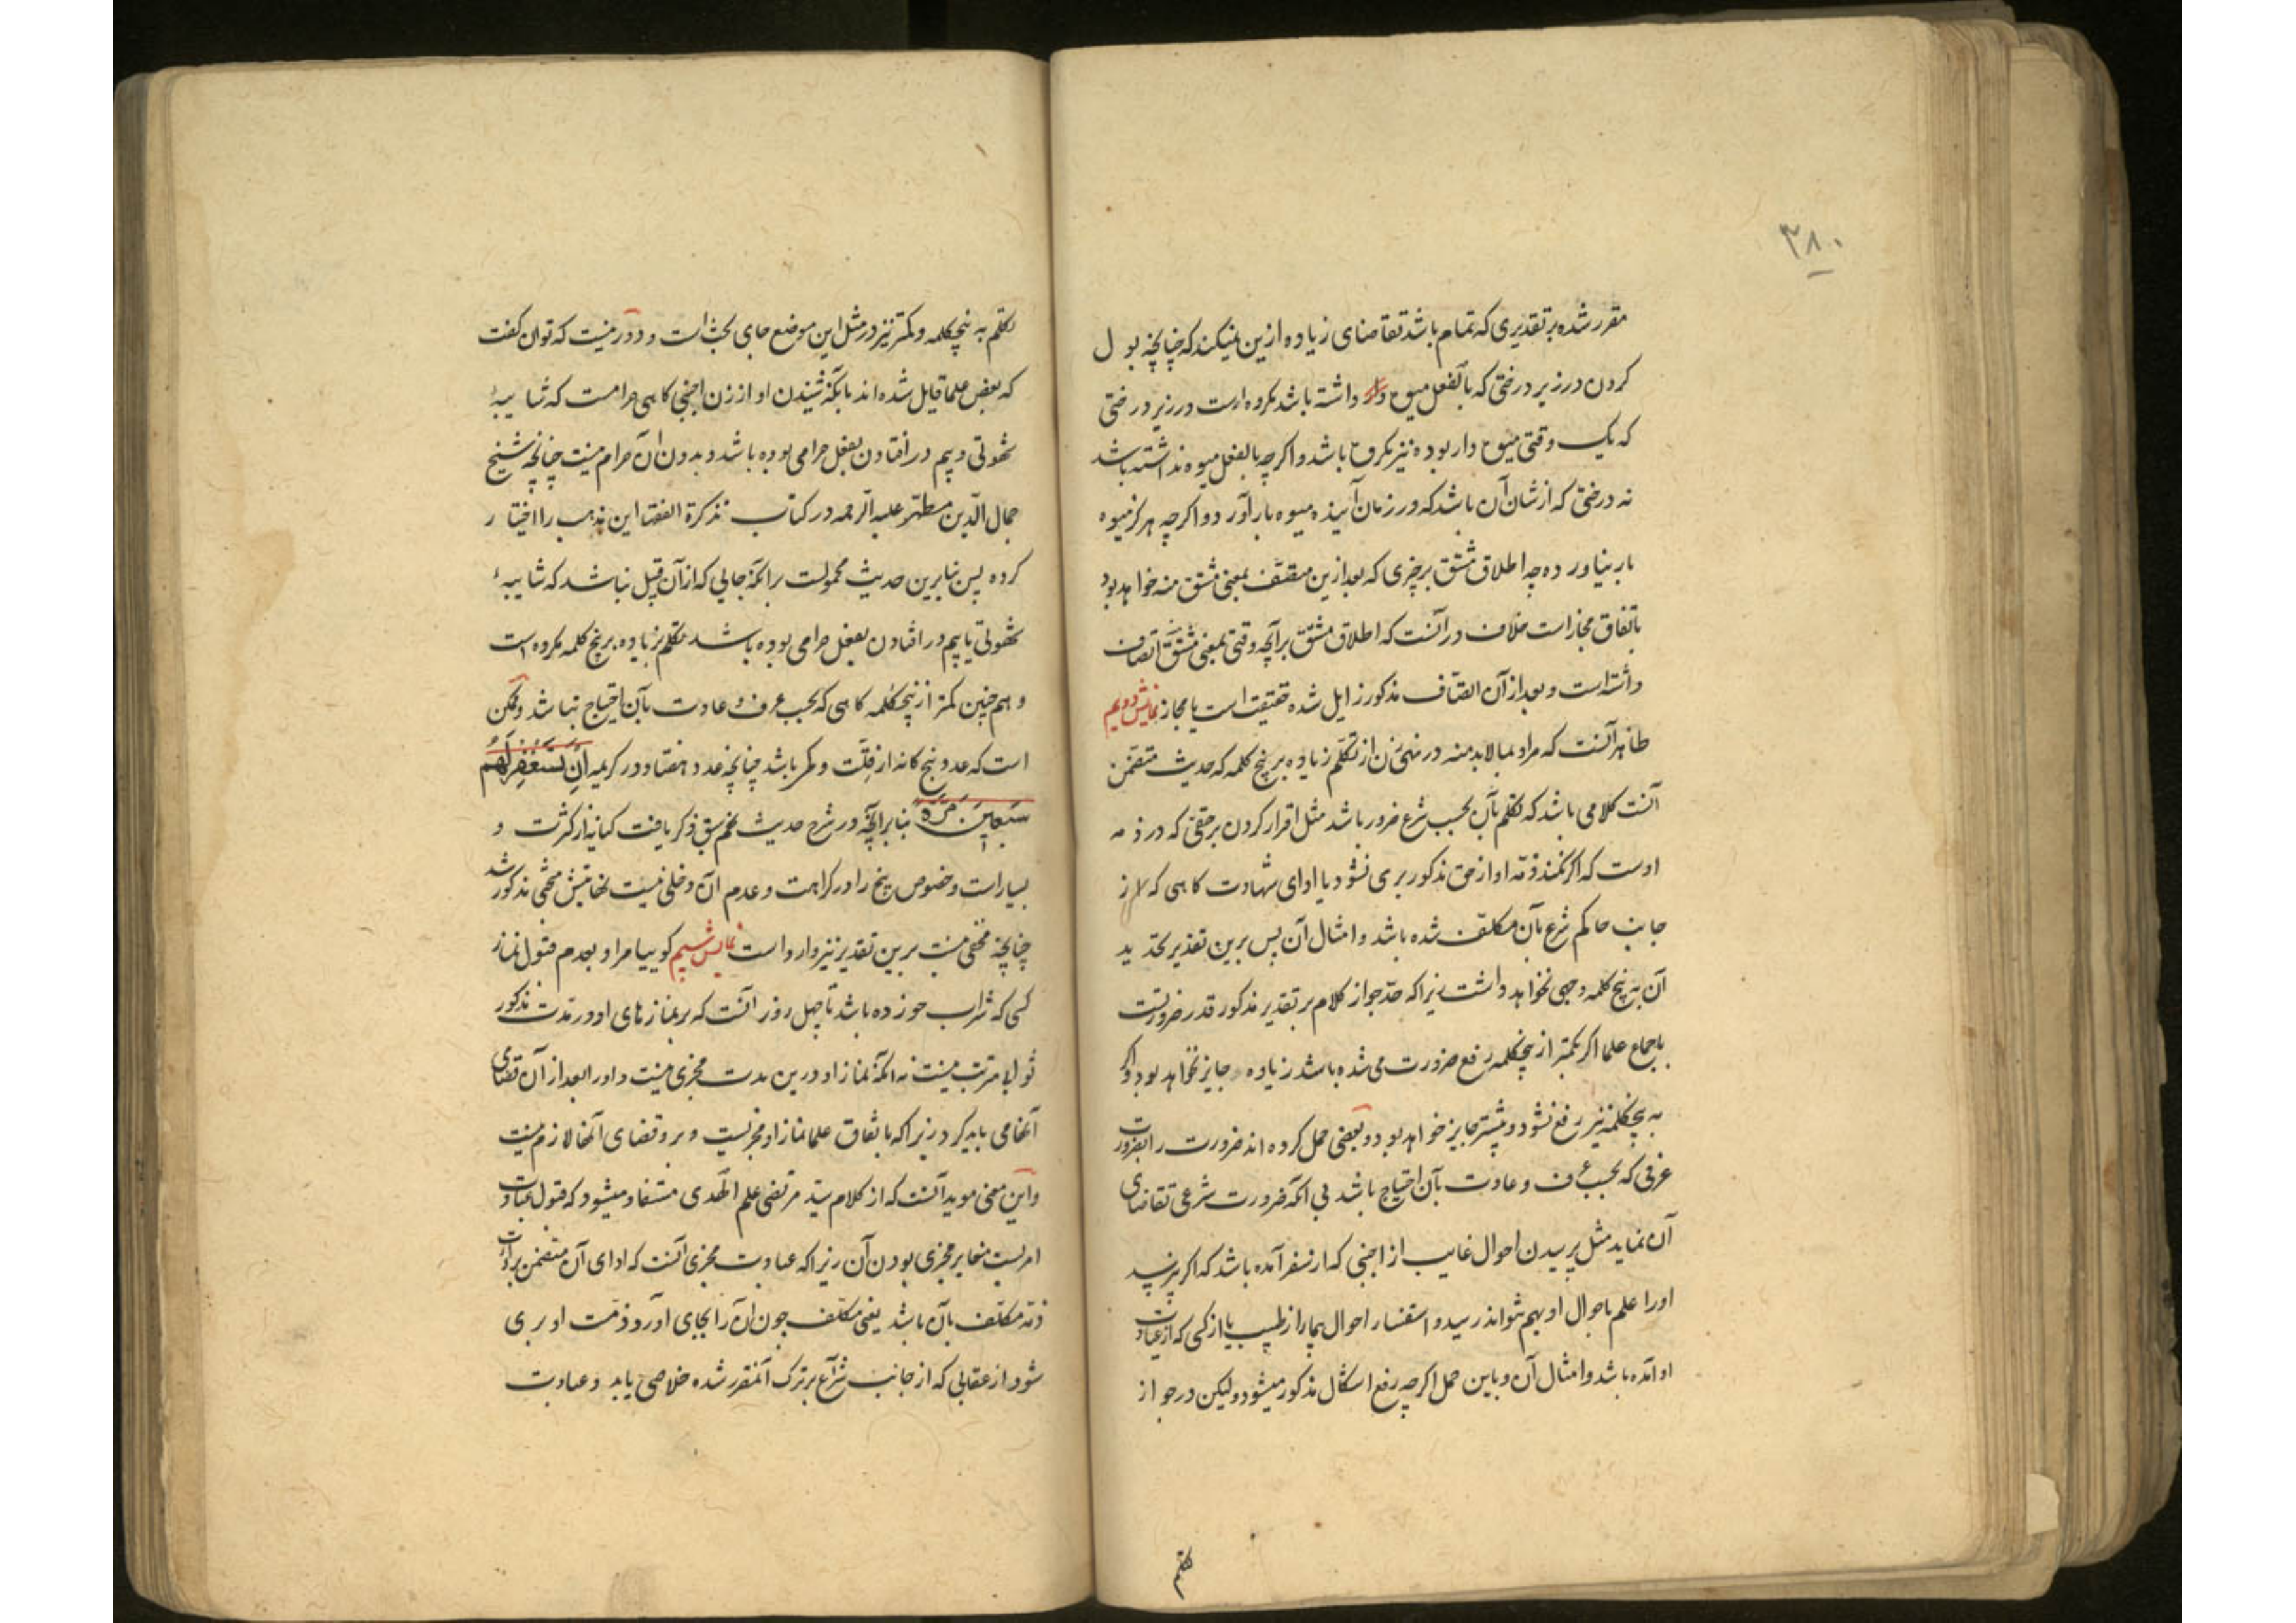 ۳۸۰
مقرر شده بر تقدیری که تمام باشد تقاضای زیاده ازین نمیکند که چنانچه بول
کردن در زیر درختی که بالفعل میوه داشته باشد مکروه است در زیر درختی
که یک وقتی میوه دار بوده نیز مکروه باشد و اگرچه بالفعل میوه نداشته باشد
نه درختی که از شان آن باشد که در زمان آینده میوه بار آورد و اگرچه هرگز میوه
بار نیاورده چه اطلاق مشتق بر چیزی که بعد ازین متصف بمعنی مشتق منه خواهد بود
باتفاق مجاز است خلاف در آنست که اطلاق مشتق بر آنچه وقتی بمعنی مشتق اتصاف
داشته است و بعد از آن اتصاف مذکور زایل شده حقیقت است یا مجاز نمایش دویم
ظاهر آنست که مراد بما لابد منه در نهی زن از تکلم زیاده بر پنج کلمه که حدیث متضمن
آنست کلامی باشد که تکلم بآن بحسب شرع ضرور باشد مثل اقرار کردن بر حقی که در ذمه
اوست که اگر نکند ذمه او از حق مذکور بری نشود یا ادای شهادت گاهی که از
جانب حاکم شرع بآن مکلف شده باشد و امثال آن پس برین تقدیر تحدید
آن به پنج کلمه وجهی نخواهد داشت زیرا که حد جواز کلام بر تقدیر مذکور قدر ضرورتست
باجماع علما اگر بکمتر از پنجکلمه رفع ضرورت می شده باشد زیاده جایز نخواهد بود و اگر
به پنجکلمه نیز رفع نشود بیشتر جایز خواهد بود و بعضی حمل کرده اند ضرورت را بضرورت
عرفی که بحسب عرف و عادت بآن احتیاج باشد بی آنکه ضرورت شرعی تقاضای
آن نماید مثل پرسیدن احوال غایب از اجنبی که از سفر آمده باشد که اگر نپرسد
او را علم باحوال او بهم نتواند رسید و استفسار احوال بیمار از طبیب یا از کسی که از عیادت
او آمده باشد و امثال آن و باین حمل اگرچه رفع اشکال مذکور میشود ولیکن در جواز
تکلم
تکلم به پنجکلمه و کمتر نیز در مثل این موضع جای بحث است و دور نیست که توان گفت
که بعض علما قایل شده اند بآنکه شنیدن آواز زن اجنبی گاهی حرامست که شایبهٔ
شهوتی و بیم در افتادن بفعل حرامی بوده باشد و بدون آن حرام نیست چنانچه شیخ
جمال الدین مطهر علیه الرحمه در کتاب تذکرة الفقها این مذهب را اختیار
کرده پس بنابرین حدیث محمولست بر آنکه جایی که از آن قبیل نباشد که شایبهٔ
شهوتی یا بیم در افتادن بفعل حرامی بوده باشد تکلم زیاده بر پنج کلمه مکروه است
و هم چنین کمتر از پنجکلمه گاهی که بحسب عرف و عادت بآن احتیاج نباشد و ممکن
است که عدد پنج کنایه از قلت و کمی باشد چنانچه عدد هفتاد در کریمه اِن تَستَغفِر لَهُم
سَبعِینَ مَرَّةً بنابر آنچه در شرح حدیث پنجم سبق ذکر یافت کنایه از کثرت و
بسیار است و خصوص پنج را در کراهت و عدم آن دخلی نیست نهایتش بحثی مذکور شد
چنانچه مخفی نیست برین تقدیر نیز وارد است نمایش سیم گوییا مراد بعدم قبول نماز
کسی که شراب خورده باشد تا چهل روز آنست که بر نمازهای او در مدت مذکور
ثوابی مترتب نیست نه آنکه نماز او درین مدت مجزی نیست و او را بعد از آن قضای
آنها می باید کرد زیرا که باتفاق علما نماز او مجزیست و برو قضای آنها لازم نیست
و این معنی موید آنست که از کلام سید مرتضی علم الهدی مستفاد میشود که قبول عبادت
امریست مغایر مجزی بودن آن زیرا که عبادت مجزی آنست که ادای آن متضمن برائت
ذمه مکلف بآن باشد یعنی مکلف چون آن را بجای آورد ذمت او بری
شود و از عقابی که از جانب شارع بر ترک آن مقرر شده خلاصی یابد و عبادت